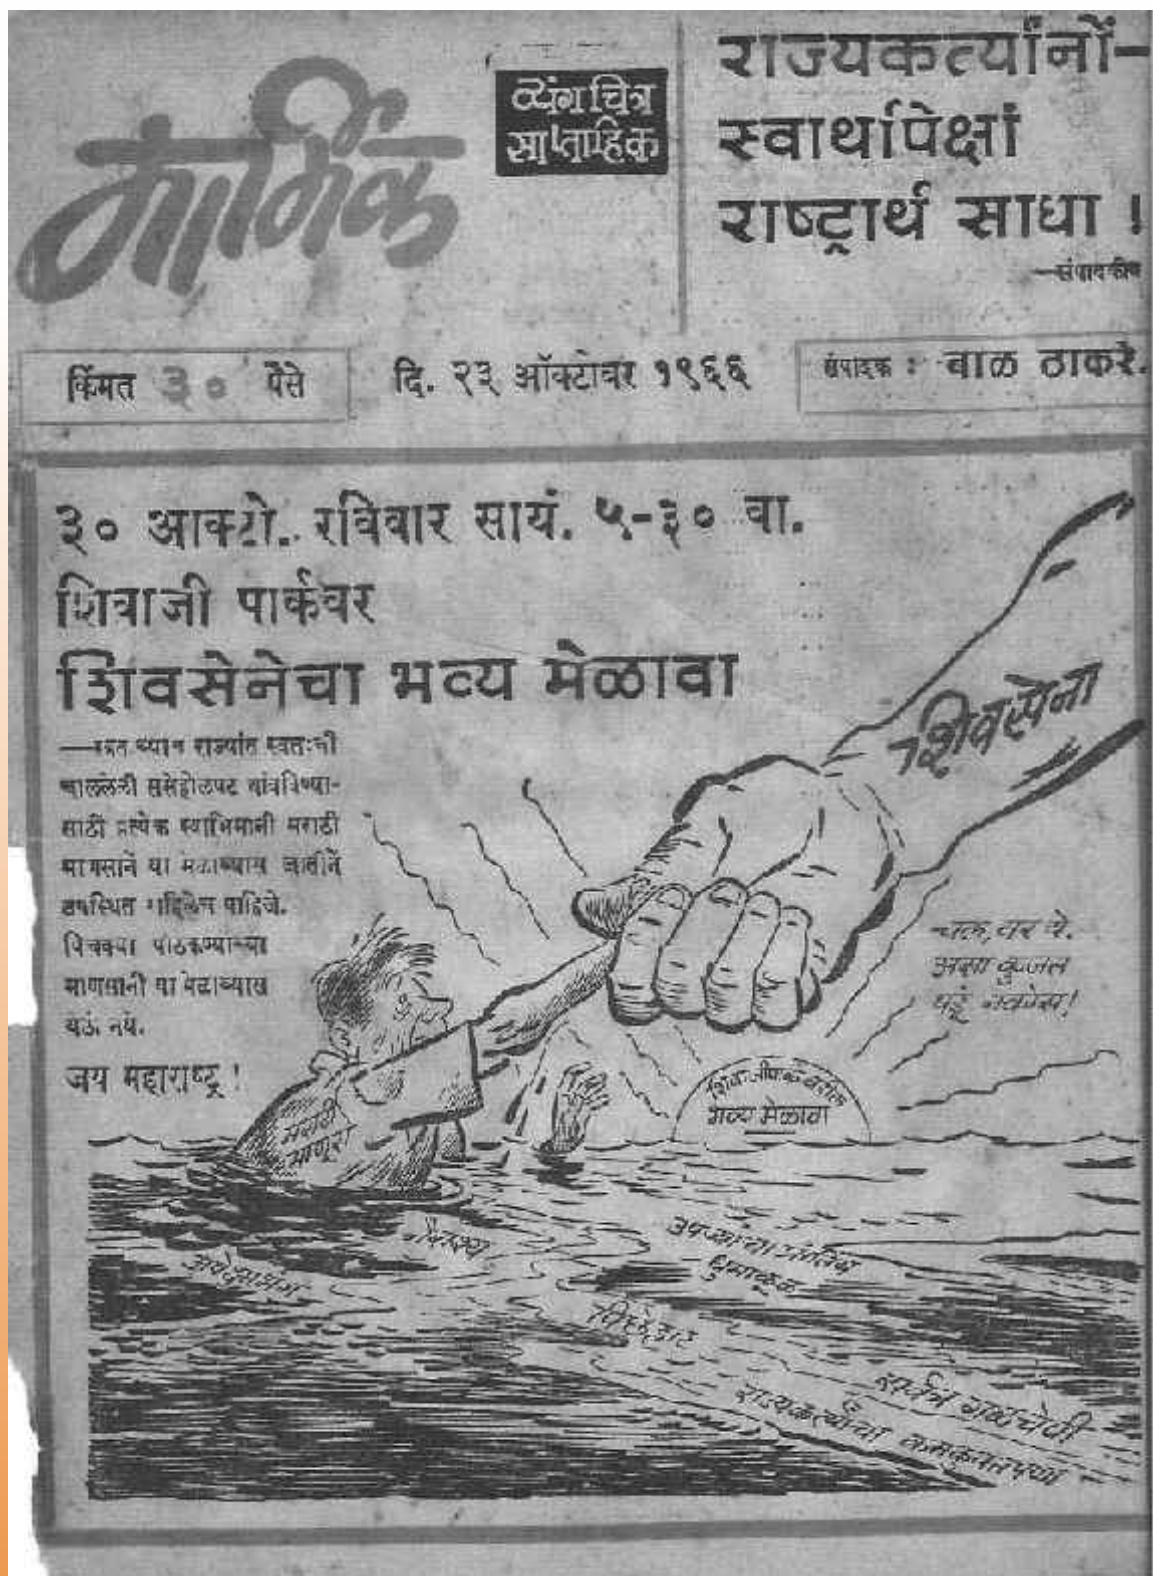 मार्मिक
व्यंगचित्र
साप्ताहिक
राज्यकर्त्यांनों—
स्वार्थापेक्षां
राष्ट्रार्थ साधा !
—संपादकीय
किंमत ३० पैसे
दि. २३ ऑक्टोबर १९६६
संपादक : बाळ ठाकरे.
३० आक्टो. रविवार सायं. ५-३० वा.
शिवाजी पार्कवर
शिवसेनेचा भव्य मेळावा
राज्यांत स्वतःची
चाललेली ससेहोलपट थांबविण्या-
साठीं प्रत्येक स्वाभिमानी मराठी
माणसानें या मेळाव्यास जातीनें
उपस्थित राहिलेच पाहिजे.
पिचक्या पाठकण्याच्या
माणसांनी या मेळाव्यास
येऊं नये.
जय महाराष्ट्र !
शिवसेना
चल, वर ये.
असा कुजत
पडूं नकोस!
शिवाजी पार्कवरील
भव्य मेळावा
मराठी
माणूस
नैराश्य
उपऱ्यांचा
धुमाकूळ
सर्वत्र गळचेपी
राज्यकर्त्यांचा कमकुवतपणा